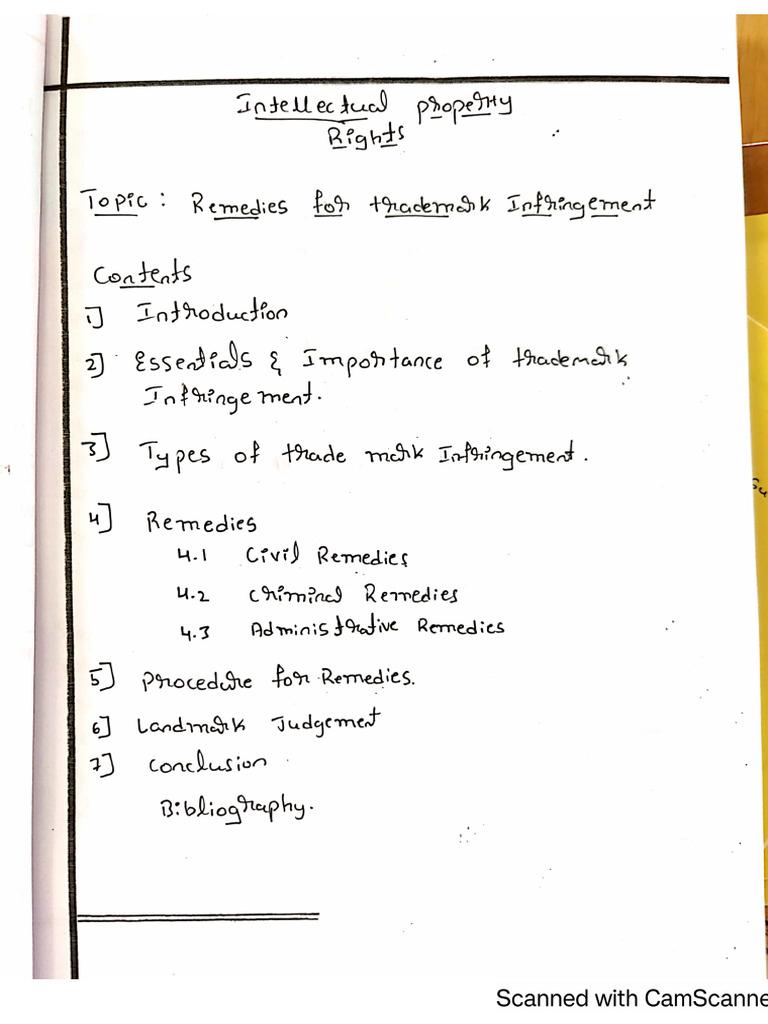 Intellectual Property
Rights
Topic: Remedies for trademark Infringement
Contents
1] Introduction
2] Essentials & Importance of trademark
Infringement.
3] Types of trade mark Infringement.
4] Remedies
4.1 Civil Remedies
4.2 Criminal Remedies
4.3 Administrative Remedies
5] Procedure for Remedies.
6] Landmark Judgement
7] Conclusion
Bibliography.
Scanned with CamScanne